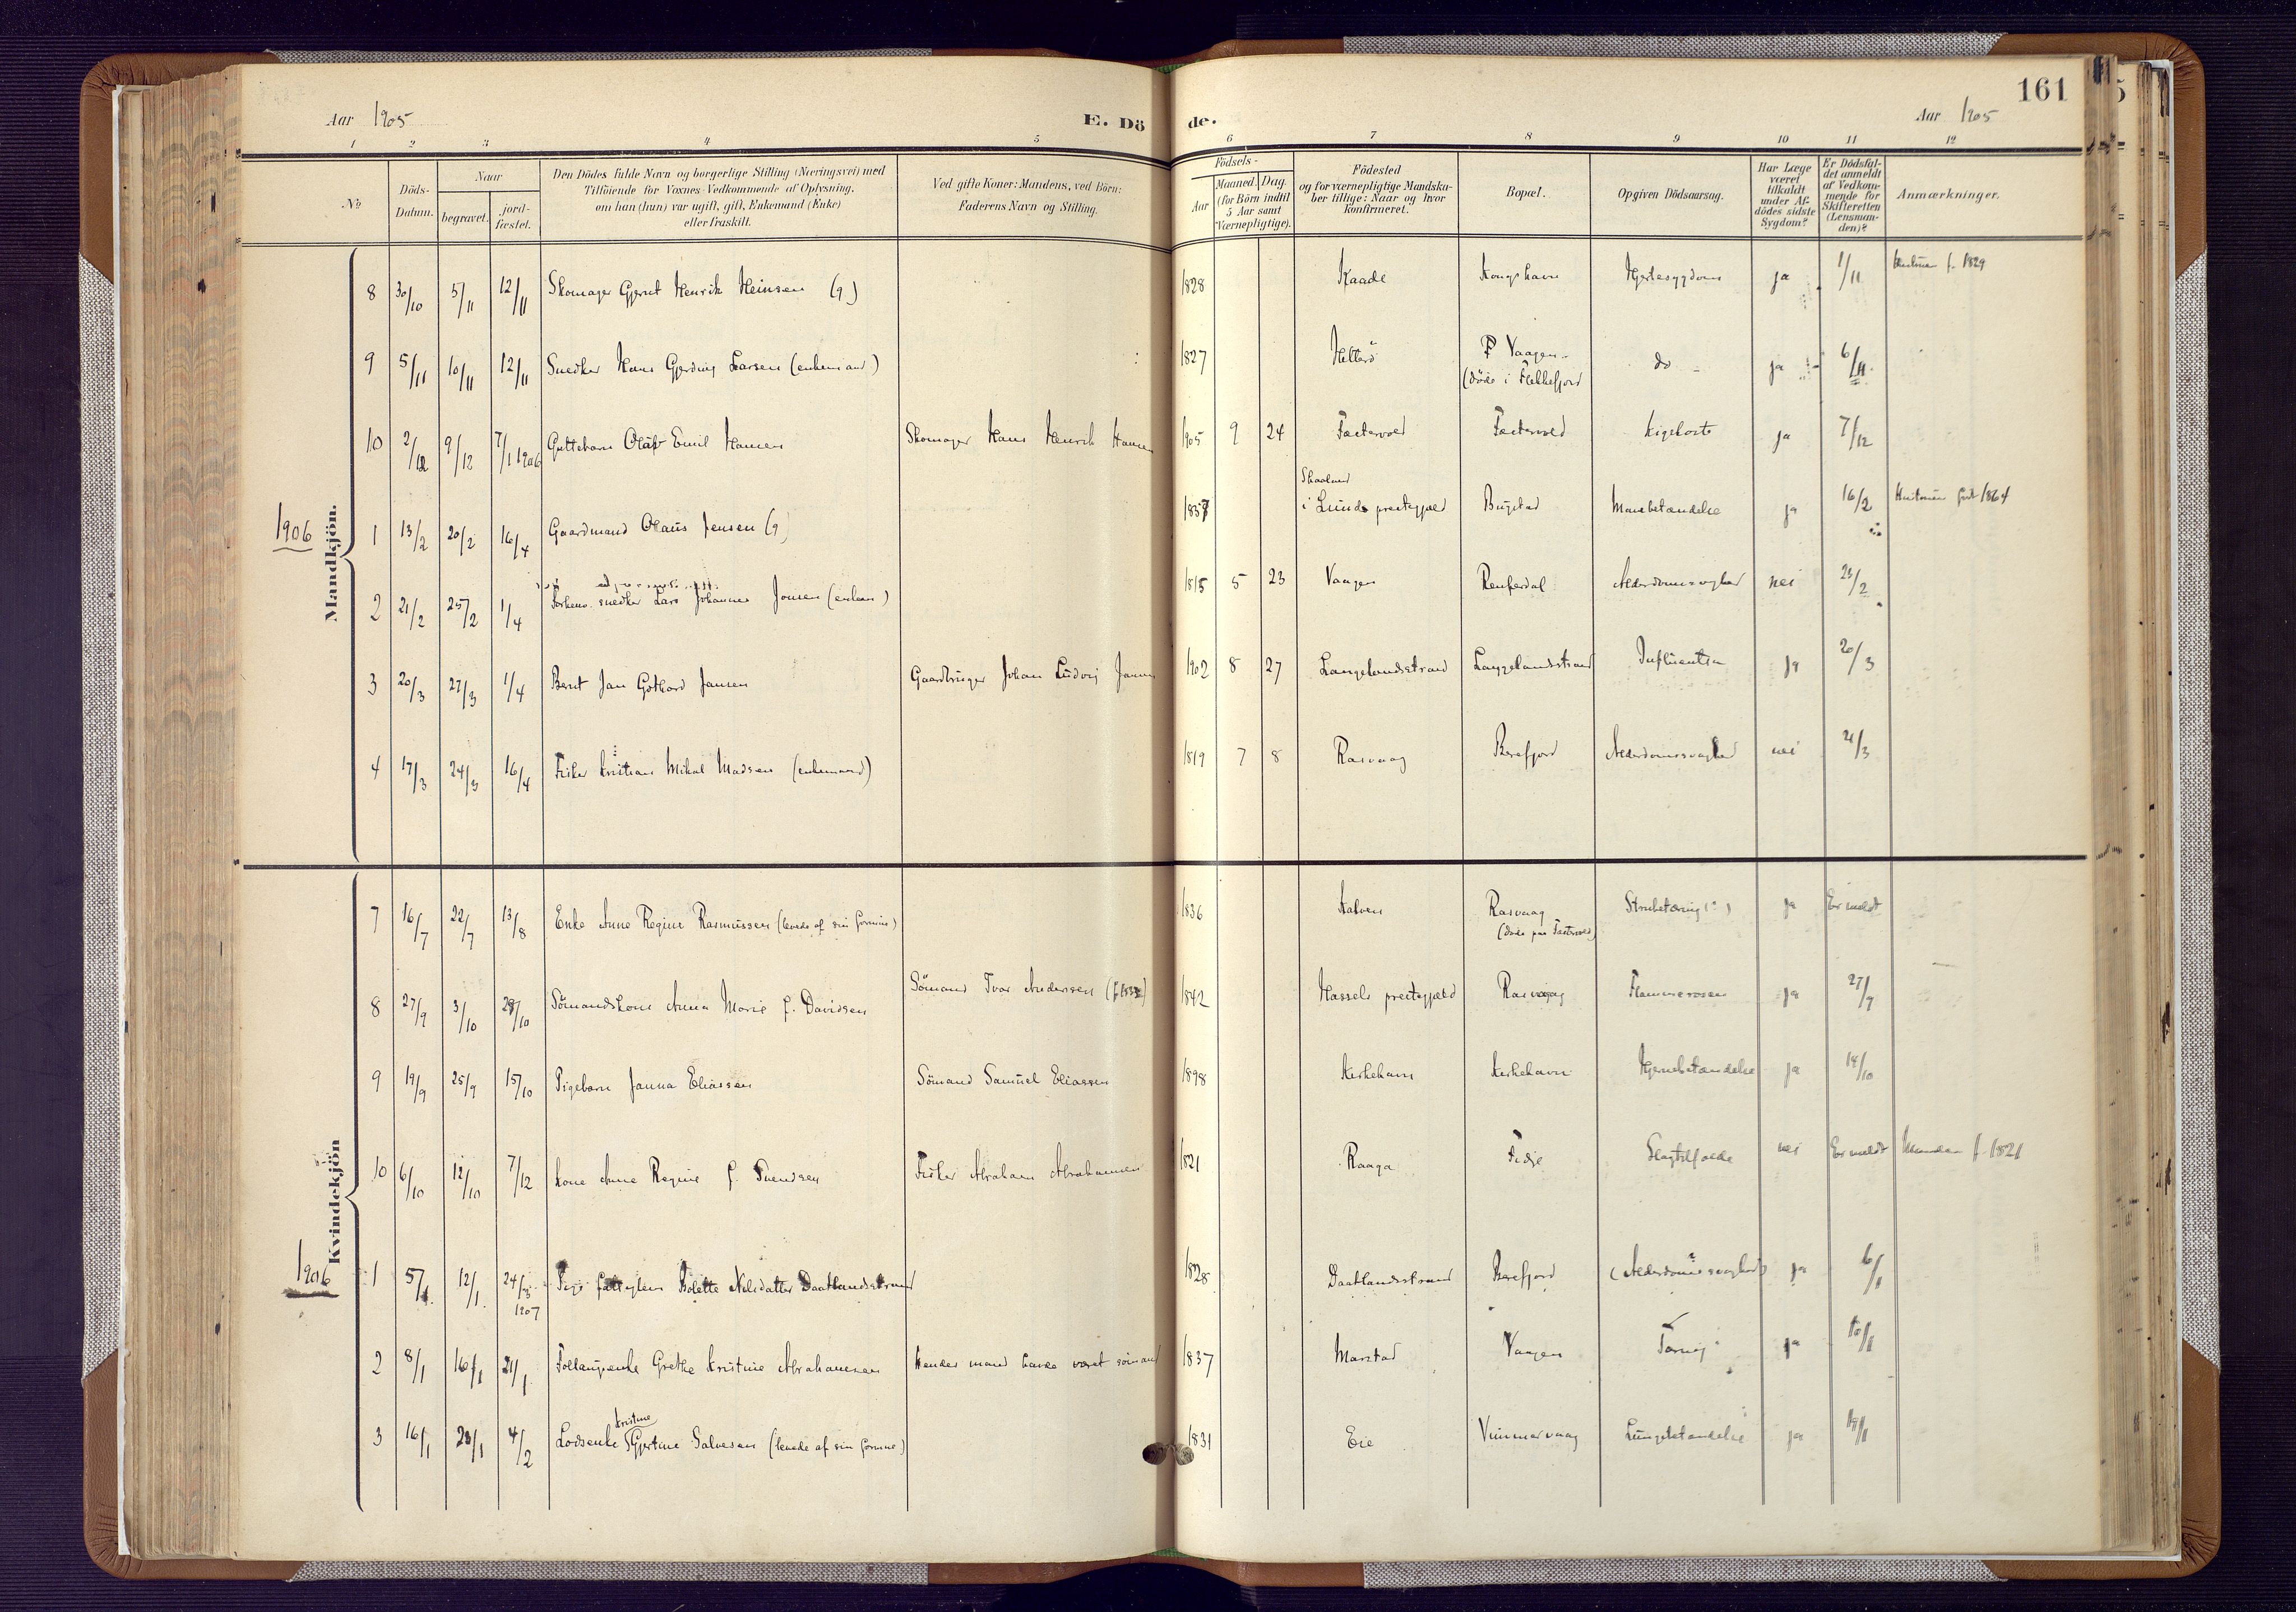 161
Aar 1905 E. Dö de. Aar 1905
1 2 3 4 5 6 7 8 9 10 11 12
No
Döds-Datum.
Naar
begravet.
jord-fæstet.
Den Dödes fulde Navn og borgerlige Stilling (Næringsvei) med
Tilföiende for Voxnes Vedkommende af Oplysning,
om han (hun) var ugift, gift, Enkemand (Enke)
eller fraskilt.
Ved gifte Koner: Mandens, ved Börn:
Faderens Navn og Stilling.
Födsels-
Aar
Maaned. Dag.
(for Börn indtil
5 Aar samt
Værnepligtige).
Födested
og for værnepligtige Mandska-
ber tillige: Naar og hvor
konfirmeret.
Bopæl.
Opgiven Dödsaarsag.
Har Læge
været
tilkaldt
under Af-
dödes sidste
Sygdom?
Er Dödsfal-
det anmeldt
af Vedkom-
mende for
Skifteretten
(Lensman-
den)?
Anmærkninger.
Mandkjön.
8 30/10 5/11 12/11 Skomager Gjerut Henrik Heinsen (g) 1828 Kaade Kongshavn Hjertesygdom ja 1/11 f. 1829
9 5/11 10/11 12/11 Snedker Hans Gjerding Larsen (enkemand) 1827 Hitterö P Vaagen (döde i Flekkefjord do ja 6/11
10 2/12 9/12 7/1 1906 Guttebarn Olaf Emil Hansen Skomager Hans Henrik Hansen 1905 9 24 Fæstevold Fæstevold Kighoste ja 7/12
1906
1 13/2 20/2 16/4 Gaardmand Olaus Jensen (g) 1857 Skaaland i Lunds prestegjæld Bugstad Mavebetændelse ja 16/2 født 1864
2 21/2 25/2 1/4 Forhenv. snedker Lars Johannes Jonsen (enkem) 1815 5 23 Vaagen Renferdal Alderdomssvaghed nei 23/2
3 20/3 27/3 1/4 Berut Jan Gothard Jansen Gaardbruger Johan Ludvig Jansen 1902 8 27 Langelandsstrand Langelandsstrand Influentsa ja 20/3
4 17/3 24/3 16/4 Fisker Kristian Mikal Madsen (enkemand) 1819 7 8 Rasvaag Berefjord Alderdomssvaghed nei 21/3
Kvindekjön
7 16/7 22/7 13/8 Enke Anne Regine Rasmussen (levede af sin formue) 1836 Kalven Rasvaag (døde paa Fæstevold) Strubetæring (?) ja Er meldt
8 27/9 3/10 29/10 Sömandskone Anna Marie f. Davidsen Sömand Tvar Andersen (f. 1832) 1842 Hassels prestegjæld Rasvaag Flammerosen ja 27/9
9 19/9 25/9 15/10 Pigebarn Janna Eliassen Sömand Samuel Eliassen 1898 Kirkehavn Kirkehavn Hjernebetændelse ja 14/10
10 6/10 12/10 7/12 Kone Anne Regine f. Svendsen Fisker Abraham Abrahamsen 1821 Raaga Fidje Slagtilfælde nei Er meldt Manden f. 1821
1906
1 5/1 12/1 24/3 1907 Pige fattiglem Bolette Nilsdatter Daatlandsstrand 1828 Daatlandsstrand Berefjord (Alderdomssvaghed) ja 6/1
2 8/1 16/1 21/1 Follaugsenke Grethe Kristine Abrahamsen Hendes mand havde været sömand 1837 Marstad Vaagen Tæring ja 10/1
3 16/1 23/1 4/2 Lodsenke Kristine Gjertine Salvesen (levede af sin formue) 1831 Eie Vimmervaag Lungebetændelse ja 18/1